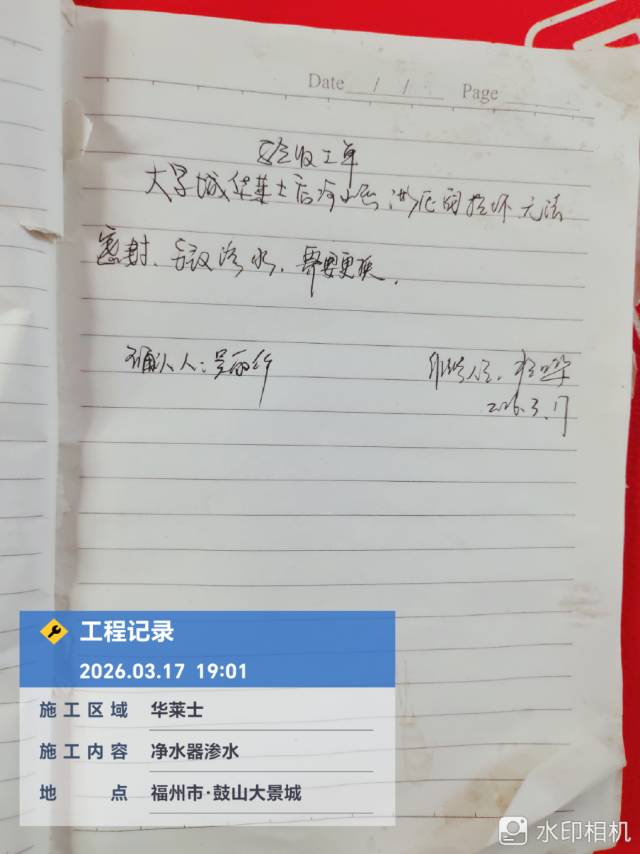 Date / / Page
验收工单
大学城华莱士店净水器 泄压阀损坏 无法
密封、导致渗水, 需要更换.
确认人: 吴丽
2026.3.17
工程记录
2026.03.17 19:01
施工区域 华莱士
施工内容 净水器渗水
地 点 福州市·鼓山大景城
水印相机